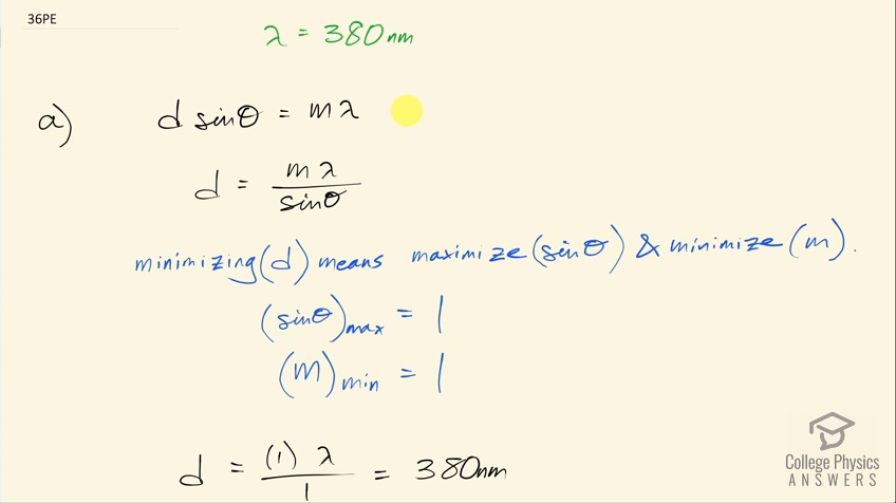 36PE
λ = 380nm
a) d sinθ = mλ
d = mλ / sinθ
minimizing(d) means maximize(sinθ) & minimize(m).
(sinθ)max = 1
(m)min = 1
d = (1) λ / 1 = 380nm
College Physics
ANSWERS